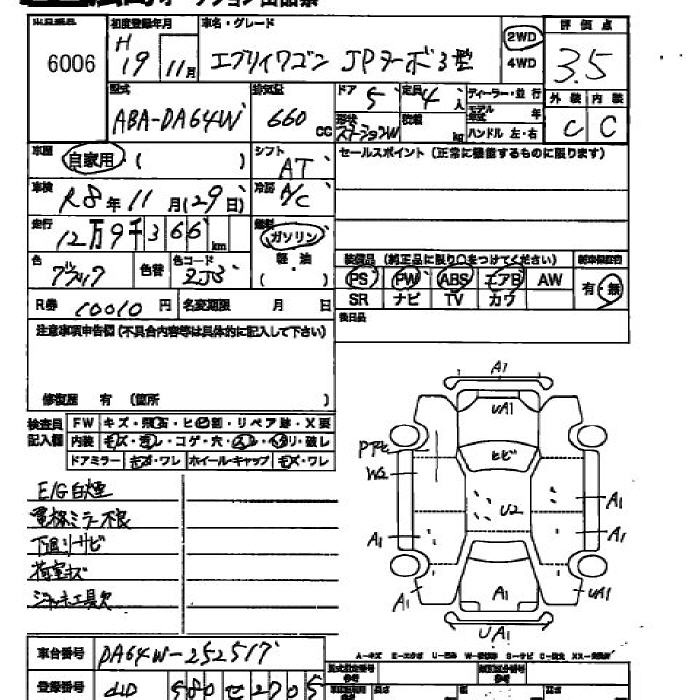 出品番号 初度登録年月 車名・グレード 評価点
6006 H19 11月 エブリイワゴン JPターボ3型 2WD 4WD 3.5
型式 排気量 ドア 5 定員 4人 ディーラー・並行 外装 内装
ABA-DA64W 660cc 形状 ステーションW 積載 kg モデル年式 年 ハンドル 左・右 C C
車歴 自家用・( ) シフト AT セールスポイント(正常に機能するものに限ります)
車検 R8年11月(29日) 冷房 A/C
走行 12万9千366km 燃料 ガソリン 軽油 ( )
装備品(純正品に限り○をつけてください) 新車保証書
色 色替 色コード ZJ3 PS PW ABS エアB AW 有・無
SR ナビ TV カワ
R券 10010円 名変期限 月 日 後日品
注意事項申告欄(不具合内容等は具体的に記入して下さい)
修復歴 有(箇所 )
検査員記入欄 FW キズ・飛石・ヒビ割・リペア跡・X要
内装 キズ・コゲ・穴・破レ
ドアミラー キズ・ワレ ホイール・キャップ キズ・ワレ
E/G白煙
電格ミラー不良
下廻りサビ
荷室キズ
ジャッキ工具欠
A1
UA1
ヒビ
W2
U2
A1
A1
A1
A1
A1
UA1
UA1
車台番号 DA64W-252517
登録番号 580 せ 2705